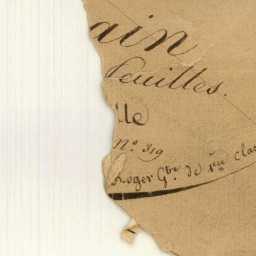 ain
feuilles.
lle
N.º 319
Roger G.bre de 1.re clas